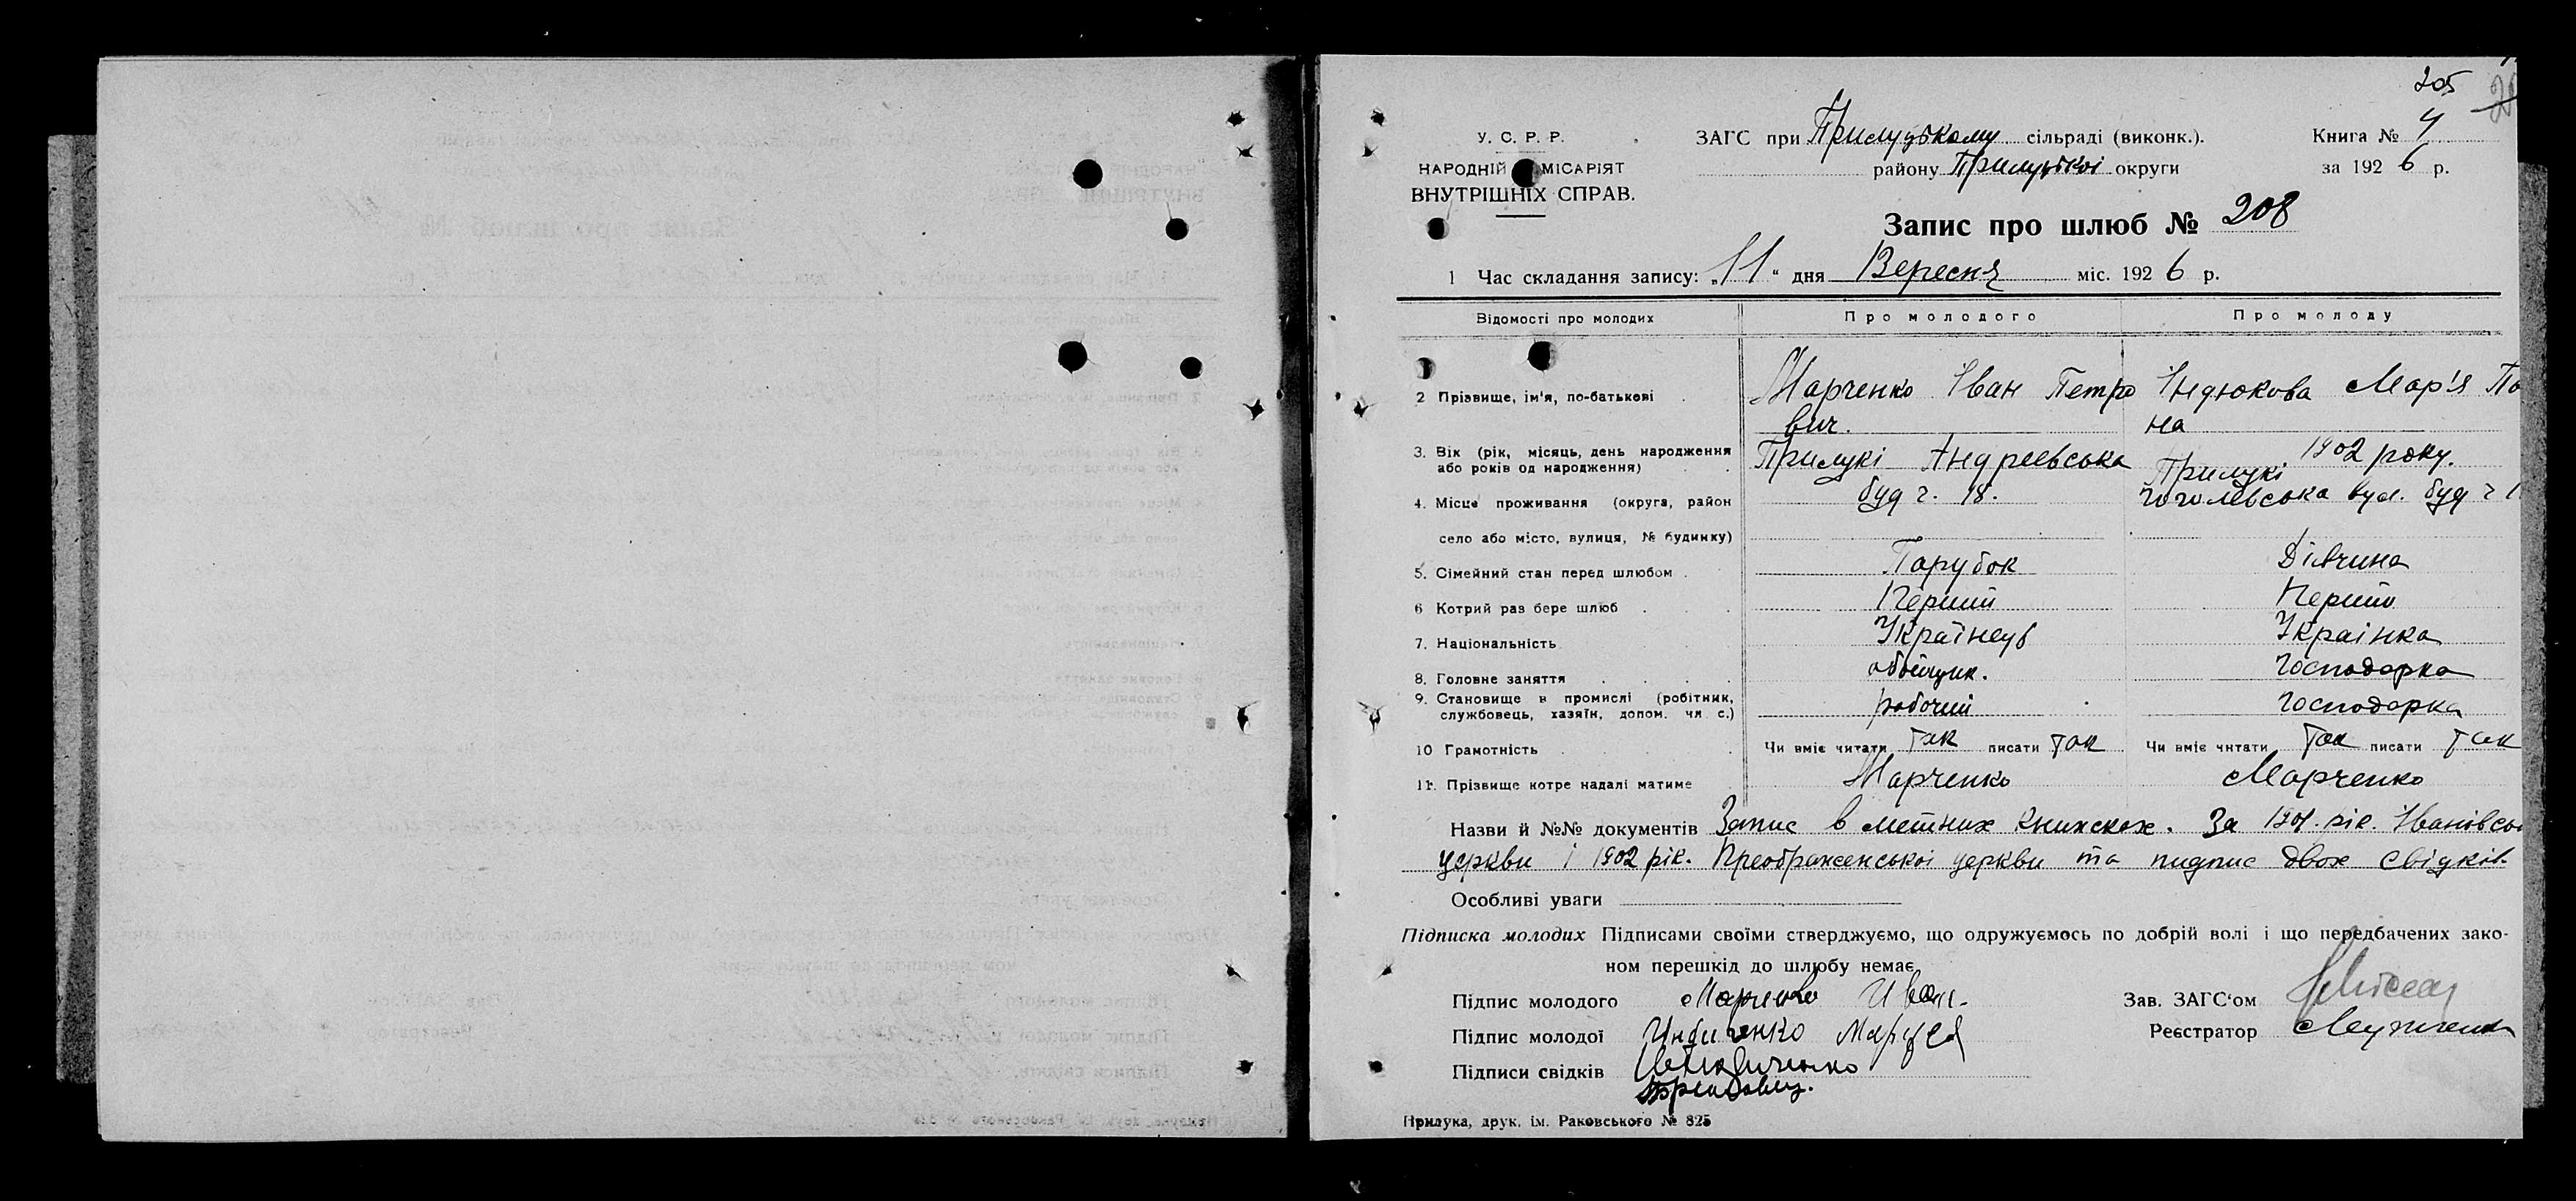 205
У. С. Р. Р.
ЗАГС при Прилуцькому сільраді (виконк.).
Книга № 4
НАРОДНІЙ МІСАРІЯТ
району Прилуцької округи
за 1926 р.
ВНУТРІШНІХ СПРАВ.
Запис про шлюб № 208
1 Час складання запису: „11“ дня Вересня міс. 1926 р.
Відомості про молодих
Про молодого
Про молоду
2 Прізвище, ім'я, по-батькові
Марченко Іван Петро
вич.
Індюкова Мар'я По
на
3. Вік (рік, місяць, день народження
або років од народження)
Прилукі Андреевська
буд ч. 18.
1902 року.
Прилукі
Гоголевська вул. буд ч
4. Місце проживання (округа, район
село або місто, вулиця, № будинку)
5. Сімейний стан перед шлюбом
Парубок
Дівчина
6 Котрий раз бере шлюб
Перший
Перший
7. Національність
Українець
Украінка
8. Головне заняття
обойщик.
Господарка
9. Становище в промислі (робітник,
службовець, хазяїн, допом. чл. с.)
рабочий
Господарка
10 Грамотність
Чи вміє читати так писати так
Чи вміє читати так писати так
11. Прізвище котре надалі матиме
Марченко
Марченко
Назви й №№ документів Запис в метних книжках. За 1901 рік. Іванівсь
церкви і 1902 рік. Преображенськоі церкви та пидпис двох свідків.
Особливі уваги
Підписка молодих Підписами своїми стверджуємо, що одружуємось по добрій волі і що передбачених зако-
ном перешкід до шлюбу немає
Підпис молодого Марченко Иван
Зав. ЗАГС'ом
Підпис молодої Индиченко Маруся
Реєстратор
Підписи свідків
Прилука, друк. ім. Раковського № 825